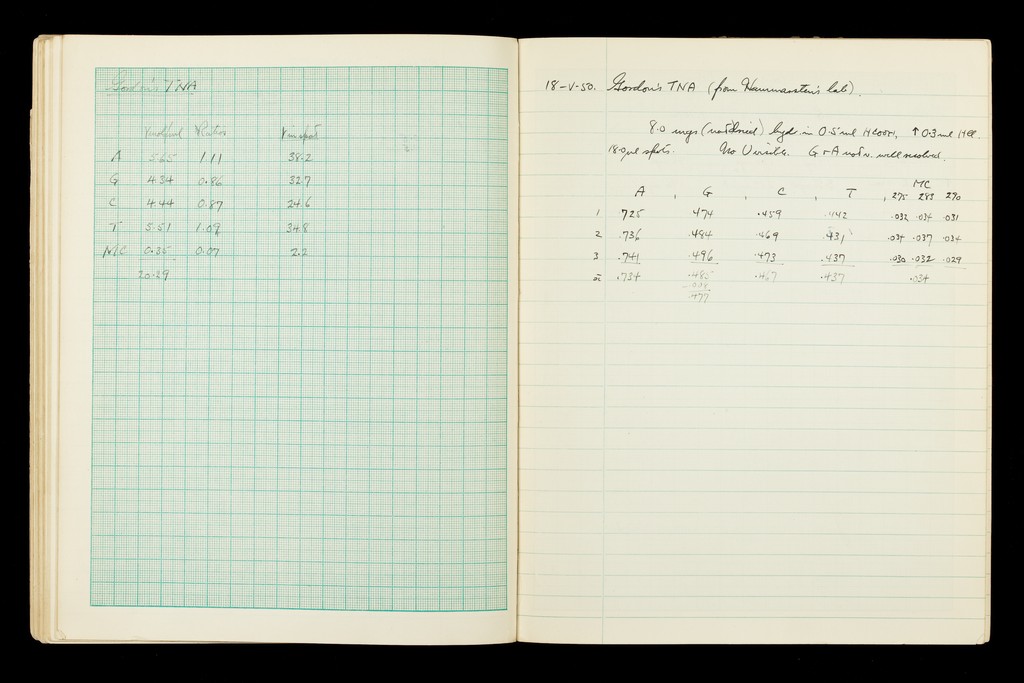 Gordon's TNA
γ in spot
A 5.65 1.11 38.2
G 4.34 0.86 32.7
C 4.44 0.87 24.6
T 5.51 1.09 34.8
MC 0.35 0.07 2.2
20.29
18-V-50. Gordon's TNA (from Hammarsten's lab).
8.0 mgs (not dried) hydr. in 0.5 ml HCOOH, ↑ 0.3 ml HCl.
18.0 μl spots. No U visible. G & A not v. well resolved.
MC
A , G , C , T , 275 283 290
1 .725 .474 .459 .442 .032 .034 .031
2 .736 .484 .469 .431 .034 .037 .034
3 .741 .496 .473 .437 .030 .032 .029
x̄ .734 .485 .467 .437 .034
-.008
.477